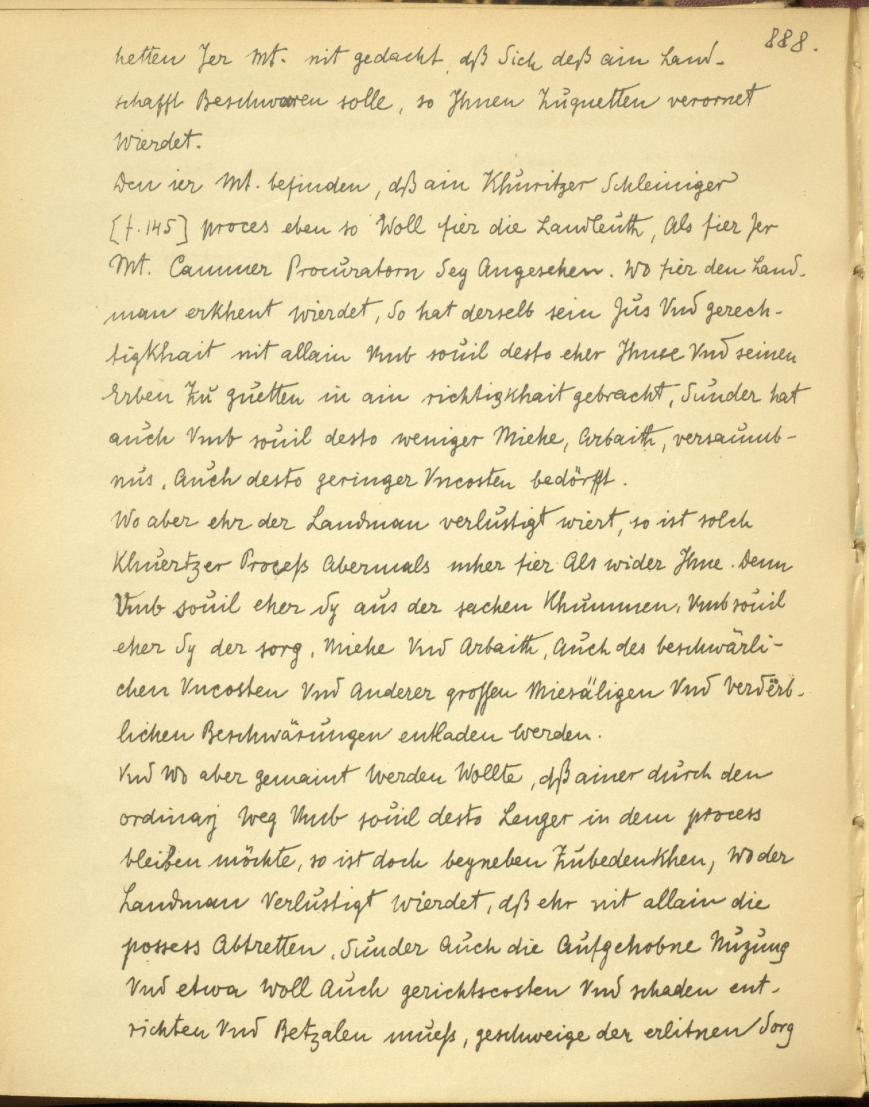 888.
hetten Jer Mt. nit gedacht, dß Sich deß ain Land-
schafft Beschwaren solle, so Jhnen Zuguetten verornet
Wierdet.
Den ier Mt. befinden, dß ain Khuritzer Schleiniger
[f. 145] proces eben so Woll fier die Landleuth, Als fier Jer
Mt. Cammer Procuratorn Sey Angesehen. Wo fier den Land-
man erkhent wierdet, So hat derselb sein Jus Vnd gerech-
tigkhait nit allain Vmb souil desto eher Jhme Vnd seinen
Erben Zu guetten in ain richtigkhait gebracht, Sunder hat
auch Vmb souil desto weniger Miehe, Arbaith, versaumb-
nus, Auch desto geringer Vncosten bedörfft.
Wo aber ehr der Landman verlustigt wiert, so ist solch
Khuertzer Proceß Abermals mher fier Als wider Jhne. Denn
Vmb souil eher Sy aus der sachen Khummen, Vmb souil
eher Sy der sorg, Miehe Vnd Arbaith, Auch des beschwärli-
chen Vncosten Vnd Anderer grossen Miesäligen Vnd Verdërb-
lichen Beschwärungen entladen Werden.
Vnd Wo aber gemaint Werden Wollte, dß ainer durch den
ordinarj Weg Vmb souil desto Lenger in dem process
bleiben möchte, so ist doch beyneben Zubedenkhen, Wo der
Landman Verlustigt wierdet, dß ehr nit allain die
possess Abtretten, Sunder Auch die Aufgehobne Nuzung
Vnd etwa Woll Auch gerichtscosten Vnd schaden ent-
richten Vnd Betzalen mueß, geschweige der erlitnen Sorg